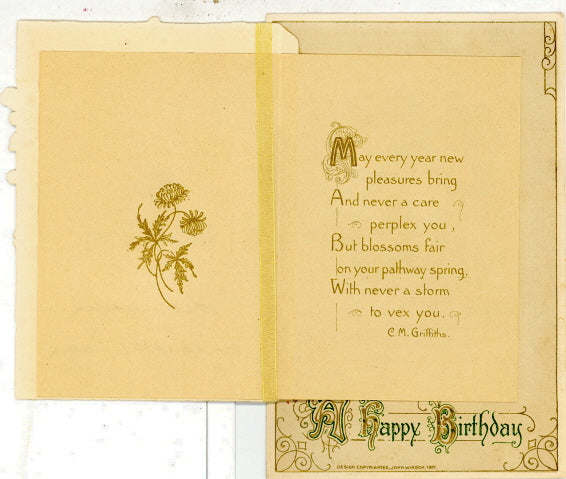 May every year new
pleasures bring
And never a care
perplex you,
But blossoms fair
on your pathway spring,
With never a storm
to vex you.
C. M. Griffiths.
A Happy Birthday
DESIGN COPYRIGHTED, JOHN WINSCH, 1911